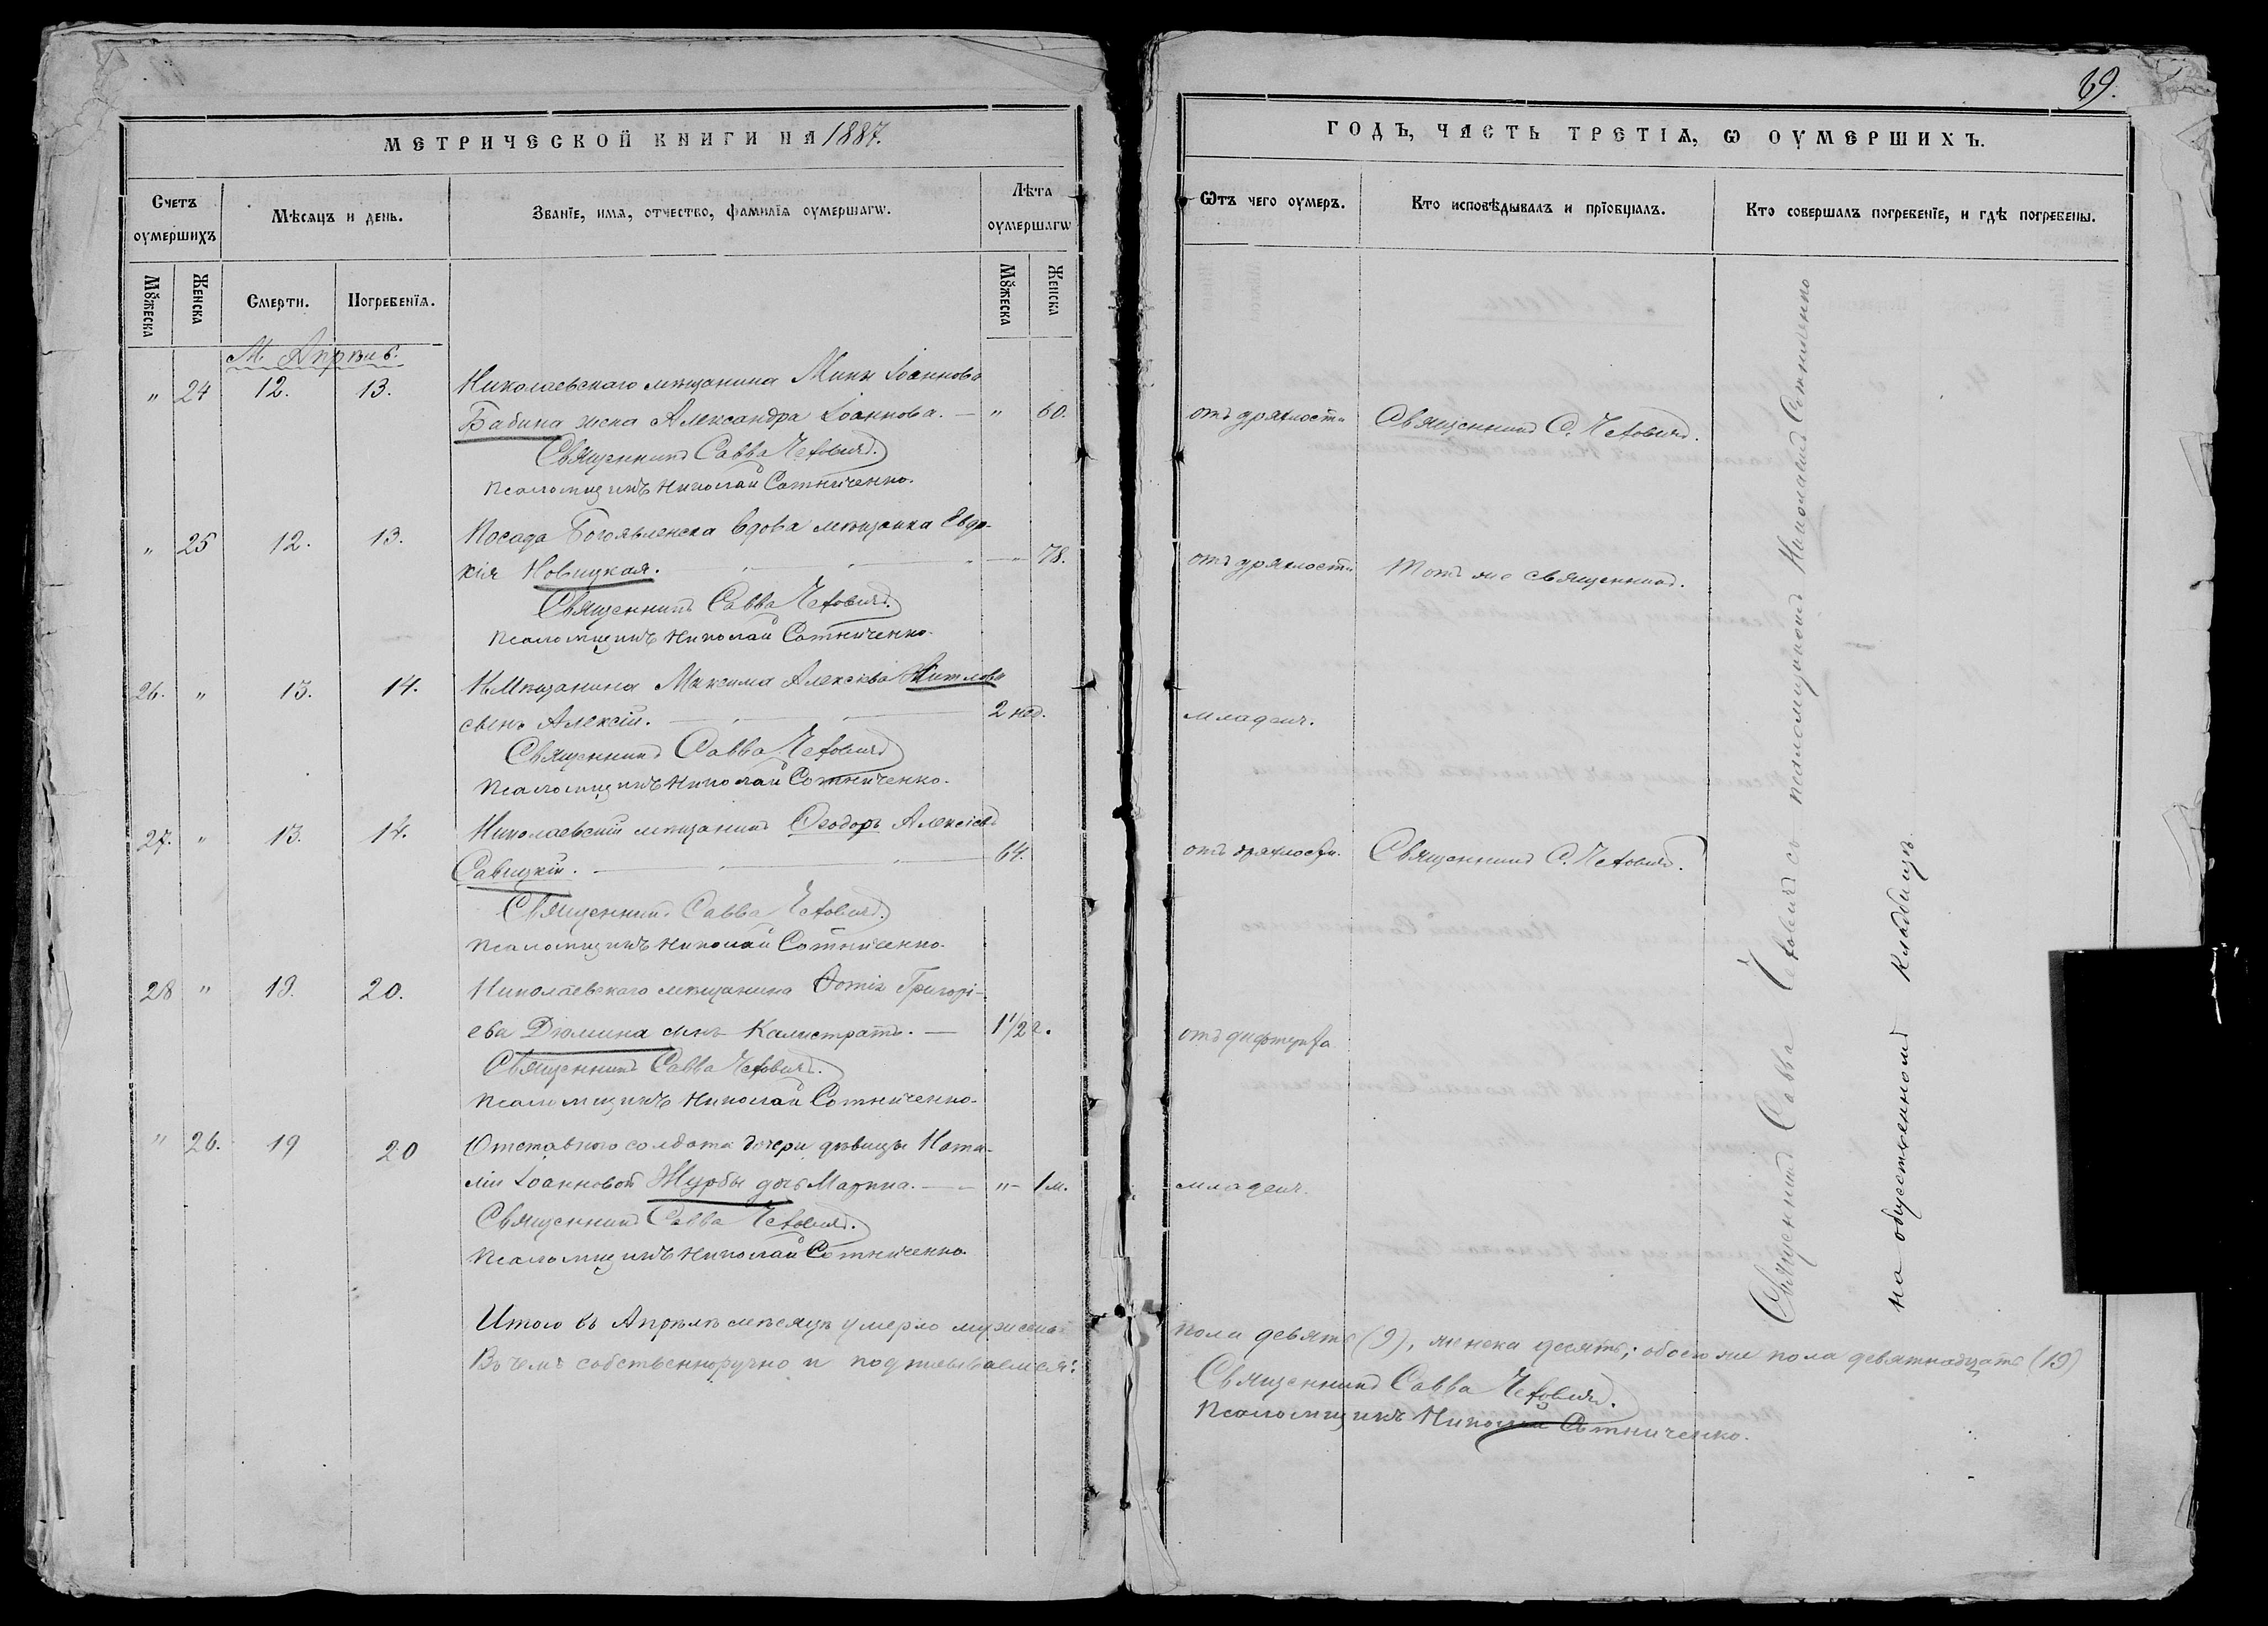 МЕТРИЧЕСКОЙ КНИГИ НА 1887.
Счетъ оумершихъ
Мѣсяцъ и день.
Званїе, имя, отчество, фамилїя оумершагѡ.
Лѣта оумершагѡ
Мꙋжеска
Женска
Смерти.
Погребенїя.
Мꙋжеска
Женска
М. Апрѣль.
" 24 12. 13. Николаевскаго мѣщанина Мины Іоаннова
Бабина жена Александра Іоаннова. — " 60.
Священникъ Савва
Псаломщикъ Николай Сотниченко.
" 25 12. 13. Посада Богоявленска вдова мѣщанка Евдо-
кія Новицкая. — 78.
Священникъ Савва
Псаломщикъ Николай Сотниченко.
26. " 13. 14. Н. Мѣщанина Максима Алексіева
сынъ Алексій. — 2 нед.
Священникъ Савва
Псаломщикъ Николай Сотниченко.
27. " 13. 14. Николаевскій мѣщанинъ Ѳеодоръ Алексіевъ
Савицкій. — 64.
Священникъ Савва
Псаломщикъ Николай Сотниченко.
28 " 19. 20. Николаевскаго мѣщанина Фотія Григорі-
ева Дюмина сынъ Калистратъ. — 1 1/2 г.
Священникъ Савва
Псаломщикъ Николай Сотниченко.
" 26. 19 20 Отставного солдата дочери дѣвицы Ната-
ліи Іоанновой Журбы дочь Марина. — " — 1 м.
Священникъ Савва
Псаломщикъ Николай Сотниченко.
Итого въ Апрѣлѣ мѣсяцѣ умерло мужеска
Въ чемъ собственноручно и подписываемся:
69.
ГОДЪ, ЧАСТЬ ТРЕТІѦ, Ѡ ОУМЕРШИХЪ.
Ѿтъ чего оумеръ.
Кто исповѣдывалъ и прїобщалъ.
Кто совершалъ погребенїе, и гдѣ погребены.
отъ дряхлости Священникъ С.
отъ дряхлости Тотъ же священникъ.
младенч.
отъ дряхлости. Священникъ С.
отъ дифтерита
младенч.
Священникъ Савва съ псаломщикомъ Николаемъ Сотниченко
на общественномъ кладбищѣ
пола девять (9), женска десять; обоего же пола девятнадцать (19)
Священникъ Савва
Псаломщикъ Николай Сотниченко.